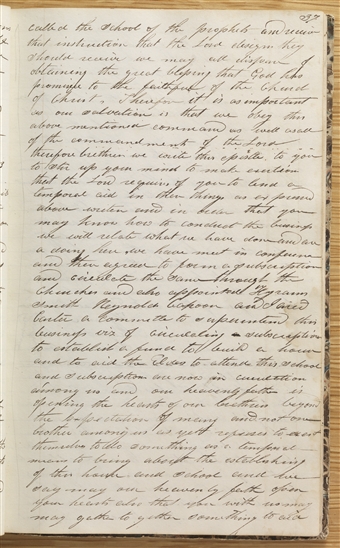 237
called the school of the prophets and receiv
that instruction that the Lord designs they
should receive we may all dispair of
obtaining the great blessing that God has
promised to the faithful of the Church
of Christ. Therefore it is as important
as our salvation is that we obey this
above mentioned command as well as all
of the commandments of the Lord
therefore brethren we write this epistle to you
to stir up your mind to make exertion
that the Lord requires of you to lend a
temporal aid in these things as
above writen and in hear that you
may know how to conduct the business
we will relate what we have done and are
a doing here we have meet in conference
and then agreed to form a subscription
and circulate the same through the
Churches and also appointed Hyrum
Smith Reynolds Cahoon and Jared
Carter a Committe to superintend this
business viz of circulating subscriptions
to establish a fund to build a house
and to aid the Elders to attend this school
and subscriptions are now in curculation
among us and our heavenly father is
opening the hearts of our brethren beyond
the expectation of many and not one
brother among us as yet refuses to exert
themselvs to do something in a temperal
means to bring about the establishing
of this house and school and we
say may our heavenly father open
your hearts also that you with us may
may gather to gether something to aid